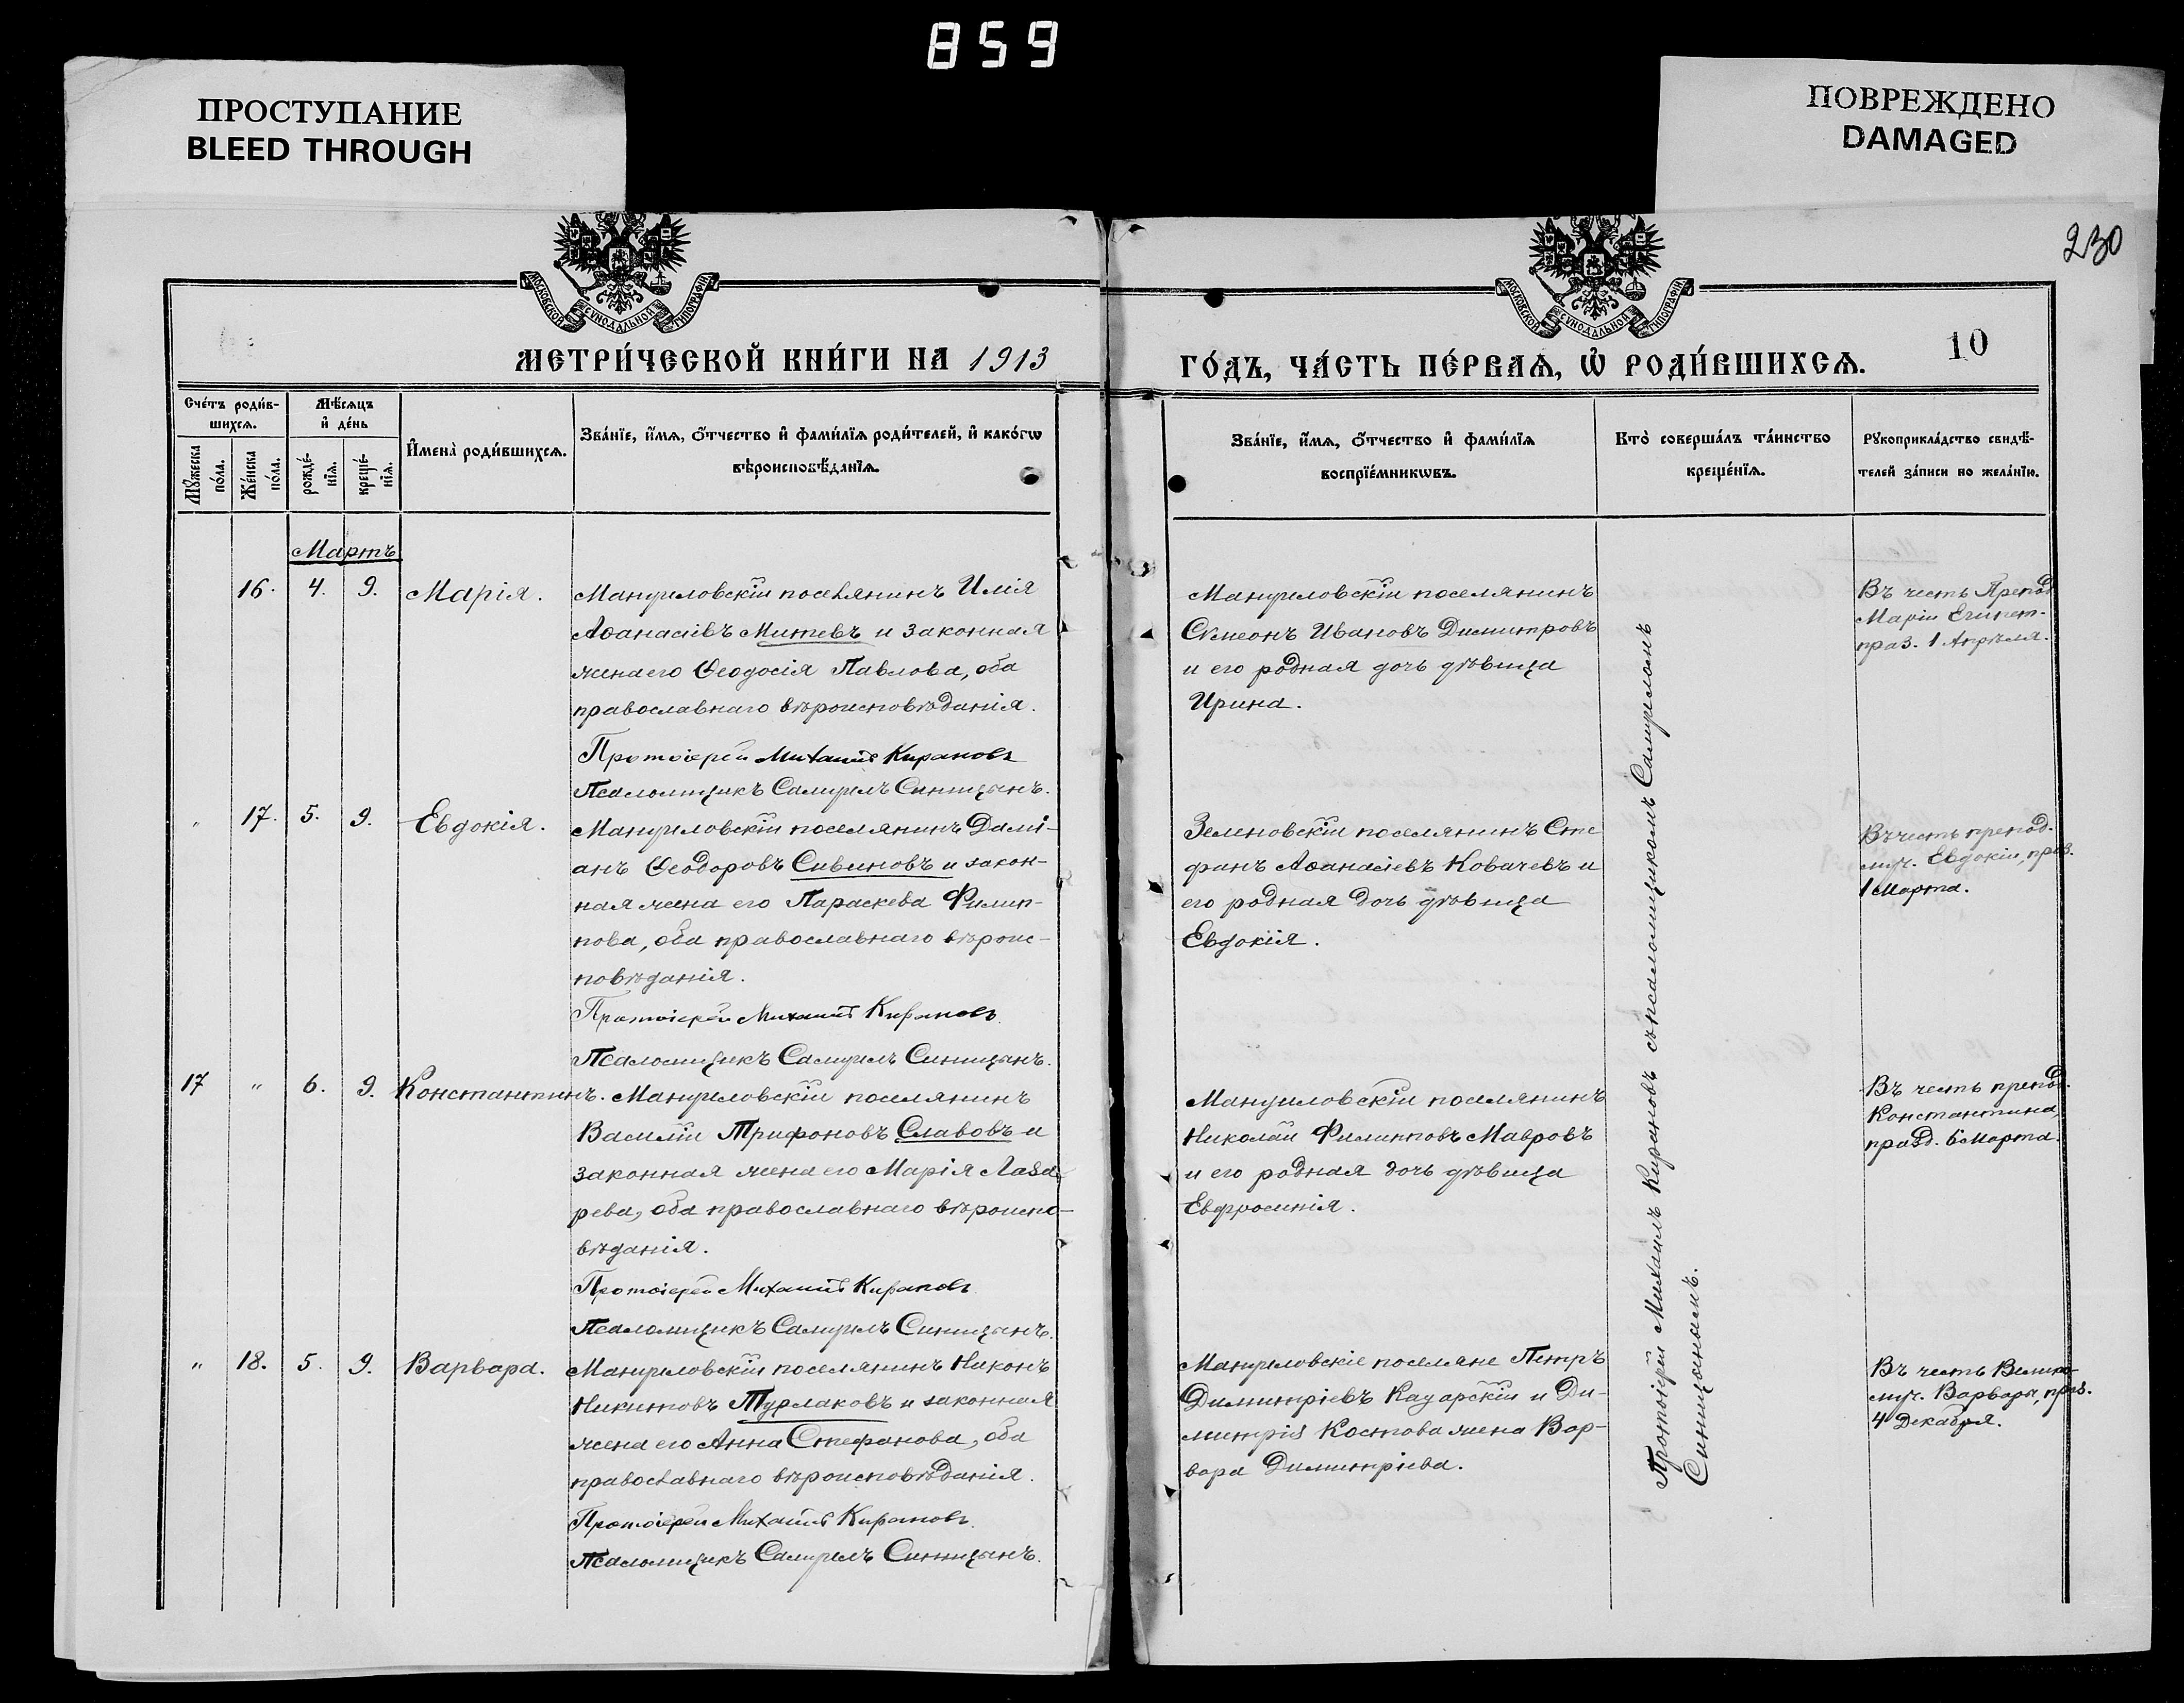 859
ПРОСТУПАНИЕ
BLEED THROUGH
ПОВРЕЖДЕНО
DAMAGED
230
МОСКОВСКОЙ СѴНОДАЛЬНОЙ ТИПОГРАФІИ
МОСКОВСКОЙ СѴНОДАЛЬНОЙ ТИПОГРАФІИ
МЕТРИ́ЧЕСКОЙ КНИ́ГИ НА 1913
ГО́ДЪ, ЧА́СТЬ ПЕ́РВАѦ, Ѡ҆ РОДИ́ВШИХСѦ.
10
Сче́тъ роди́в-
шихсѧ.
Мѣ́сѧцъ
и҆ де́нь
Мꙋ́жеска
по́ла.
Же́нска
по́ла.
рожде́-
нїѧ.
креще́-
нїѧ.
И҆мена̀ роди́вшихсѧ.
Зва́нїе, и҆́мѧ, ѻ҆́тчество и҆ фами́лїѧ роди́телей, и҆ како́гѡ
вѣроисповѣ́данїѧ.
Зва́нїе, и҆́мѧ, ѻ҆́тчество и҆ фами́лїѧ
воспрїе́мникѡвъ.
Кто̀ соверша́лъ та́инство
креще́нїѧ.
Рꙋкоприкла́дство свидѣ́-
телей за́писи по жела́нїю.
Мартъ
16. 4. 9. Марія.
Мануиловскій поселянинъ Илія
Аѳанасіевъ Митевъ и законная
жена его Ѳеодосія Павлова, оба
православнаго вѣроисповѣданія.
Протоіерей Михаилъ Кирановъ
Псаломщикъ Самуилъ Синицынъ.
Мануиловскій поселянинъ
Симеонъ Ивановъ Димитровъ
и его родная дочь дѣвица
Ирина.
Въ честь Препод.
Маріи Египет.
праз. 1 Апрѣля.
" 17. 5. 9. Евдокія.
Мануиловскій поселянинъ Дамі-
анъ Ѳеодоровъ Сивиновъ и закон-
ная жена его Параскева Филип-
пова, оба православнаго вѣроис-
повѣданія.
Протоіерей Михаилъ Кирановъ
Псаломщикъ Самуилъ Синицынъ.
Зеленовскій поселянинъ Сте
фанъ Аѳанасіевъ Ковачевъ и
его родная дочь дѣвица
Евдокія.
Въ честь препод.
муч. Евдокіи, праз.
1 Марта.
17 " 6. 9. Константинъ.
Мануиловскій поселянинъ
Василій Трифоновъ Славовъ и
законная жена его Марія Лаза-
рева, оба православнаго вѣроиспо-
вѣданія.
Протоіерей Михаилъ Кирановъ
Псаломщикъ Самуилъ Синицынъ.
Мануиловскій поселянинъ
Николай Филипповъ Мавровъ
и его родная дочь дѣвица
Евфросинія.
Въ честь препод.
Константина,
празд. 6 Марта.
" 18. 5. 9. Варвара.
Мануиловскій поселянинъ Никонъ
Никитовъ Турлаковъ и законная
жена его Анна Стефанова, оба
православнаго вѣроисповѣданія.
Протоіерей Михаилъ Кирановъ
Псаломщикъ Самуилъ Синицынъ.
Мануиловскіе поселяне Петръ
Димитріевъ Кадарскій и Ди-
митрія Костова жена Вар-
вара Димитріева.
Въ честь Велико-
муч. Варвары, праз.
4 Декабря.
Протоіерей Михаилъ Кирановъ съ псаломщикомъ Самуиломъ
Синицынымъ.